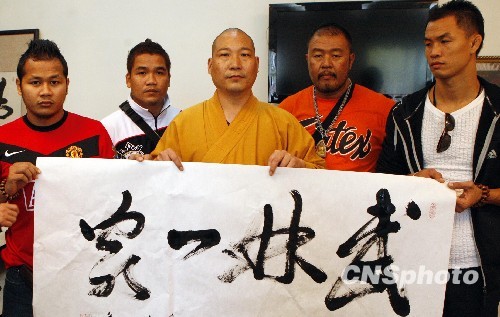 武林一家
CNSphoto